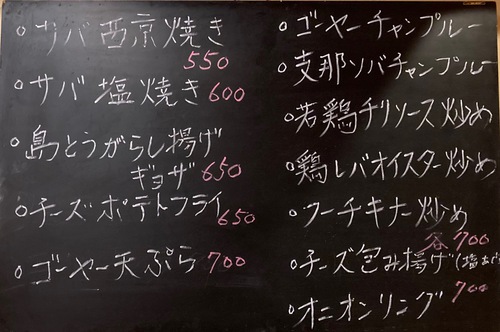 ○サバ西京焼き
550
○サバ塩焼き 600
○島とうがらし揚げ
ギョザ 650
○チーズポテトフライ 650
○ゴーヤー天ぷら 700
○ゴーヤーチャンプルー
○支那ソバチャンプルー
○若鶏チリソース炒め
○鶏レバオイスター炒め
○フーチキナー炒め
各700
○チーズ包み揚げ
○オニオンリング 700